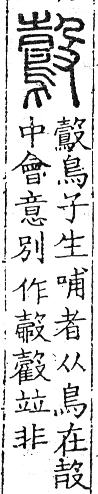 鷇鳥子生哺者从鳥在㱿
中會意別作竝非